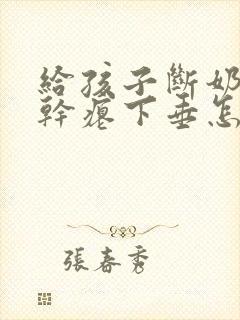 給孩子斷奶
幹瘪下垂怎
張春秀